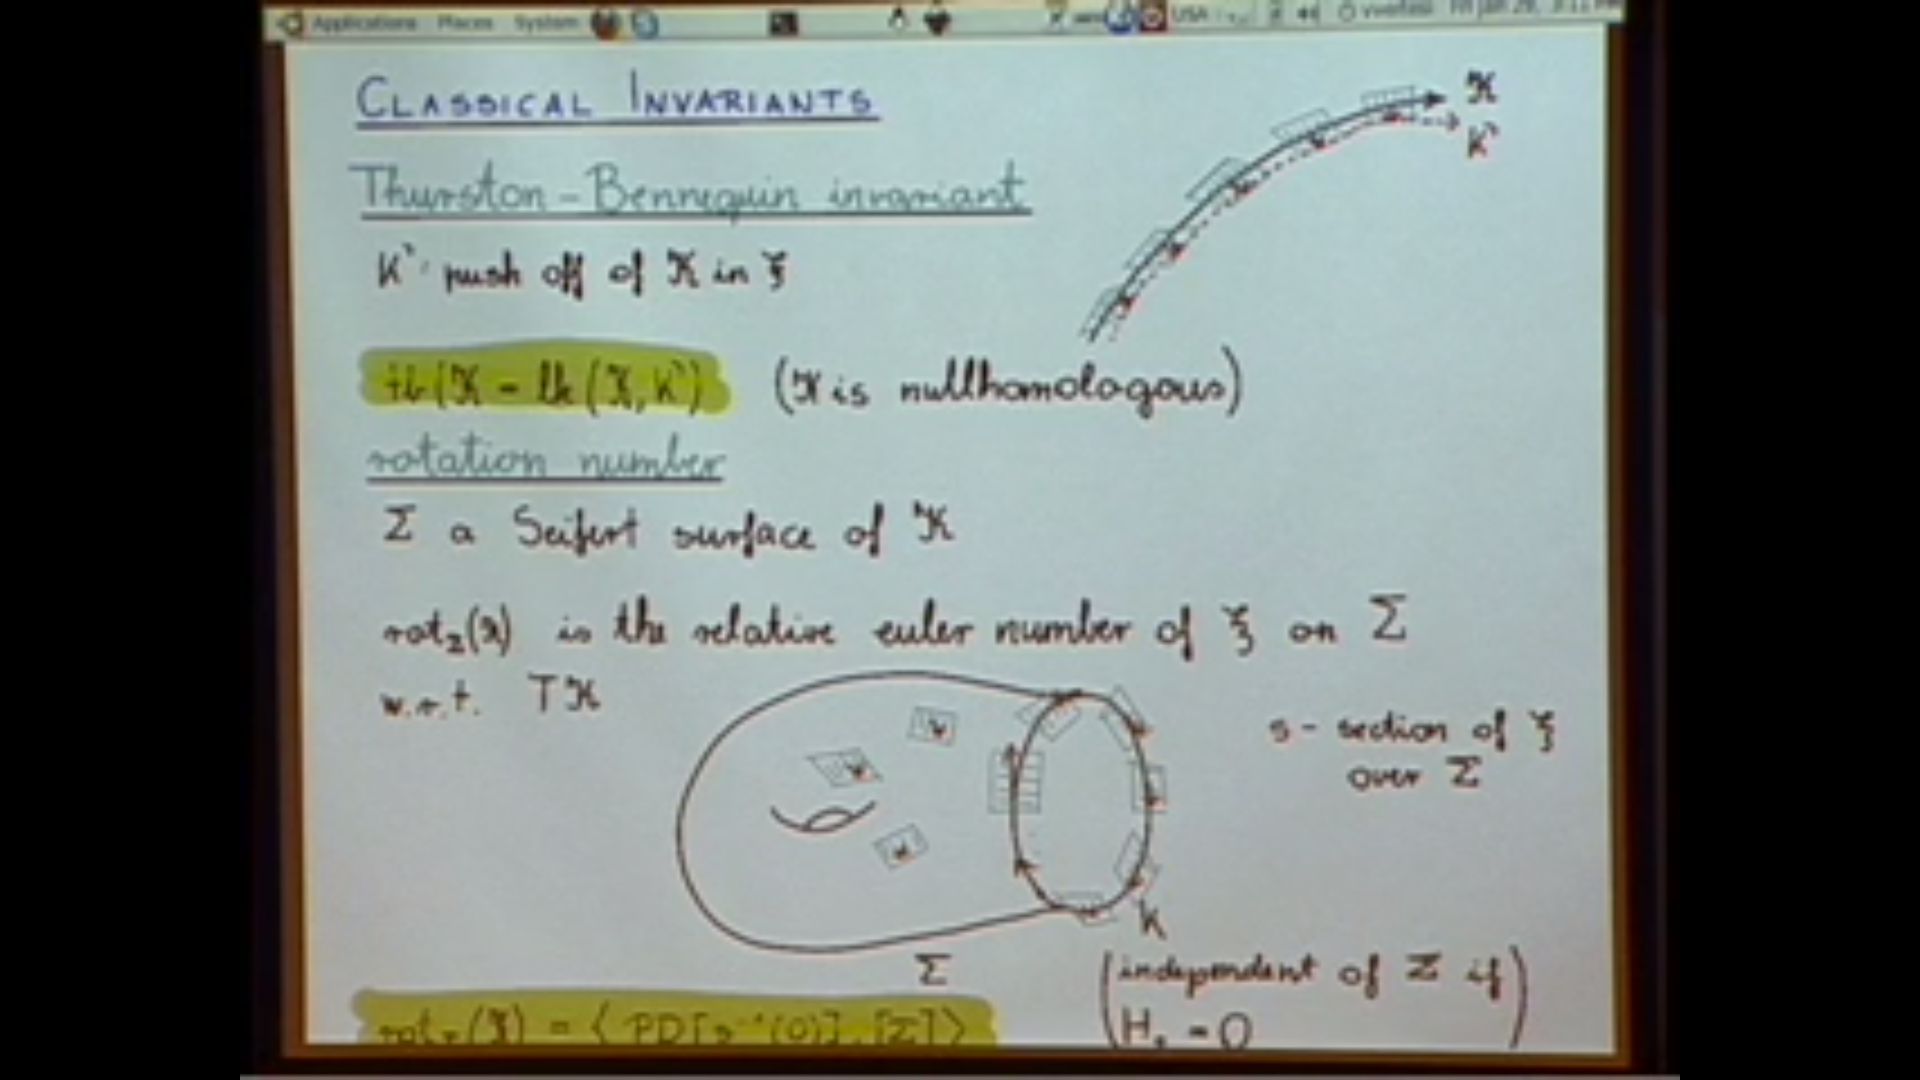 Applications Places System USA
CLASSICAL INVARIANTS
Thurston-Bennequin invariant
K
K'
K' push off of K in ξ
tb(K = lk(K, K') (K is nullhomologous)
rotation number
Σ a Seifert surface of K
rot_Σ(K) is the relative euler number of ξ on Σ
w.r.t. TK
s - section of ξ
over Σ
K
Σ
(independent of Σ if
H₂ = 0)
rot_Σ(K) = ⟨PD[s⁻¹(0)], [Σ]⟩